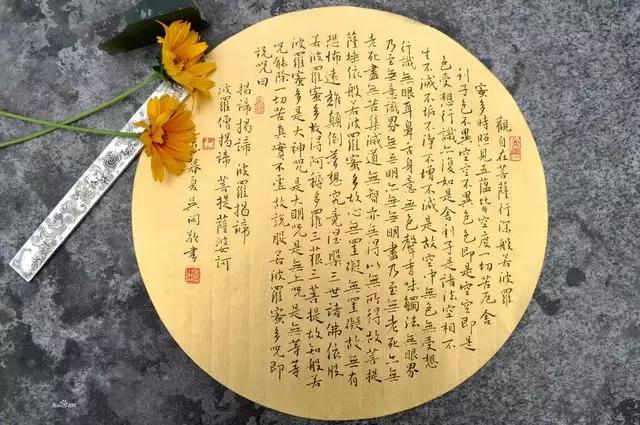 觀自在菩薩行深般若波羅
蜜多時照見五蘊皆空度一切苦厄舍
利子色不異空空不異色色即是空空即是
色受想行識亦復如是舍利子是諸法空相不
生不滅不垢不淨不增不減是故空中無色無受想
行識無眼耳鼻舌身意無色聲香味觸法無眼界
乃至無意識界無無明亦無無明盡乃至無老死亦無
老死盡無苦集滅道無智亦無得以無所得故菩提
薩埵依般若波羅蜜多故心無罣礙無罣礙故無有
恐怖遠離顛倒夢想究竟涅槃三世諸佛依般
若波羅蜜多故得阿耨多羅三藐三菩提故知般若
波羅蜜多是大神咒是大明咒是無上咒是無等等
咒能除一切苦真實不虛故說般若波羅蜜多咒即
說咒曰
揭諦揭諦 波羅揭諦
波羅僧揭諦 菩提薩婆訶
夏吳閒敬書
Baidu百科